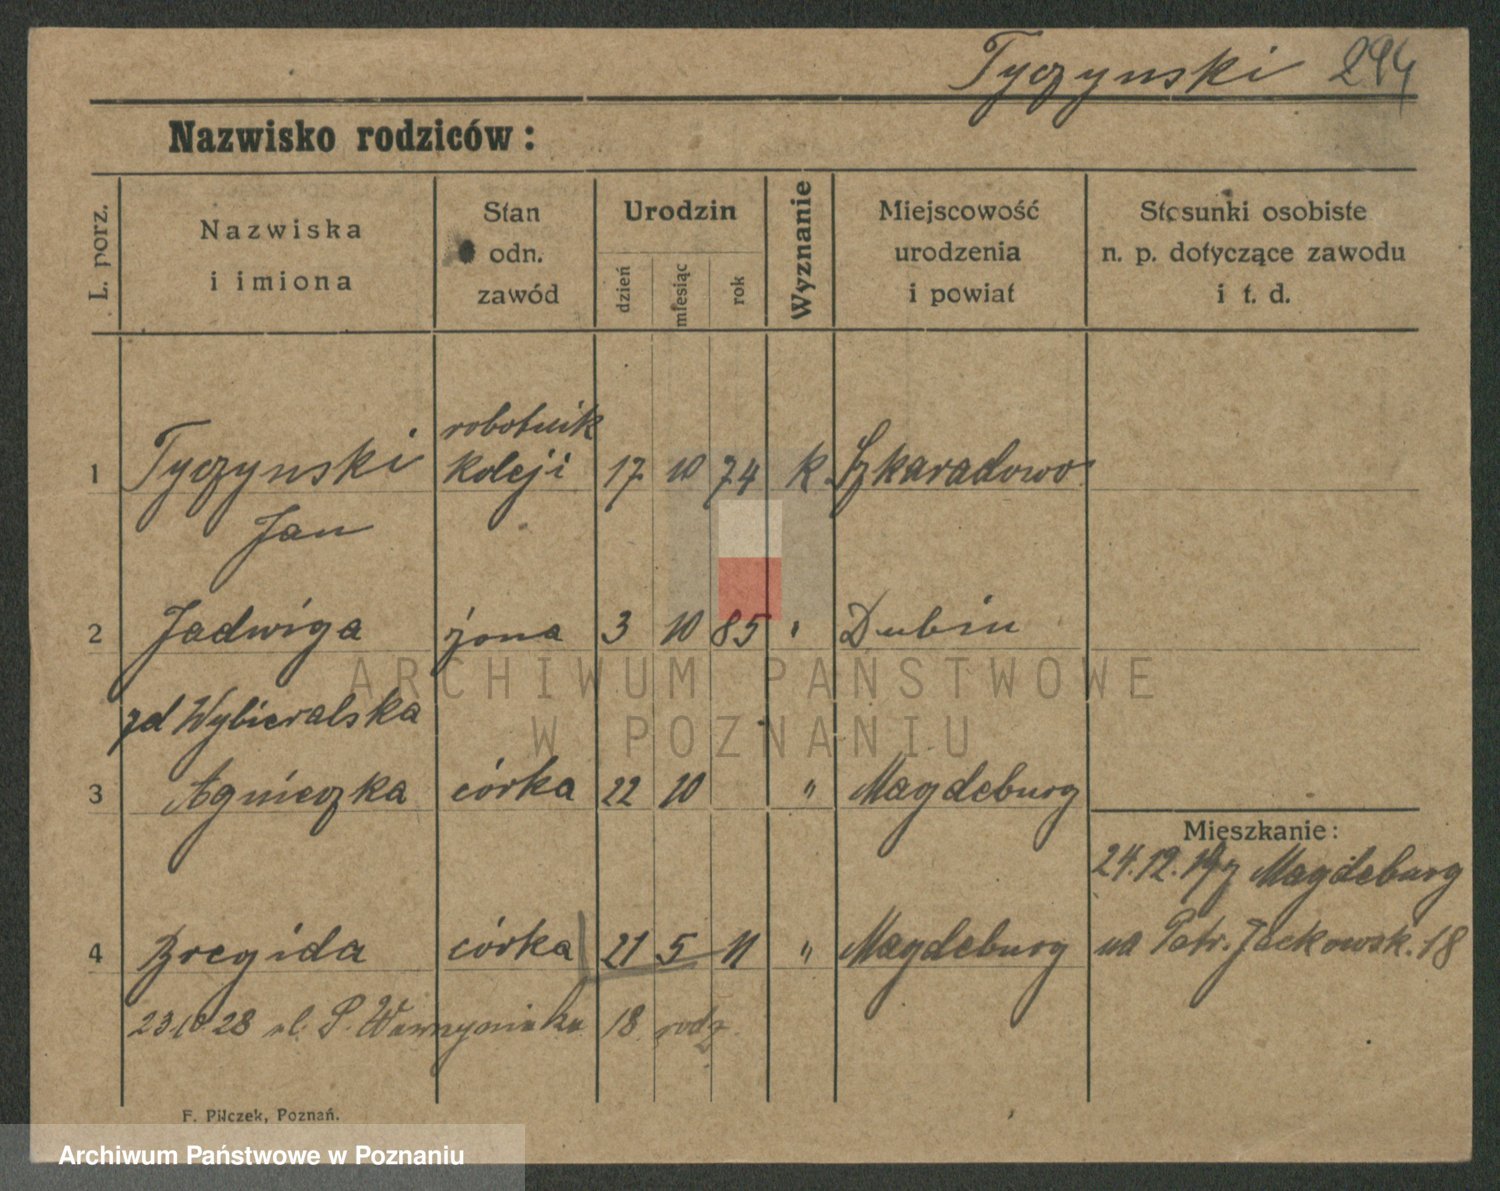 Tyczynski 294
Nazwisko rodziców:
L. porz.
Nazwiska
i imiona
Stan
odn.
zawód
Urodzin
dzień
miesiąc
rok
Wyznanie
Miejscowość
urodzenia
i powiat
Stosunki osobiste
n. p. dotyczące zawodu
i t. d.
robotnik
1 Tyczynski koleji 17 10 74 k. Szkaradowo
Jan
2 Jadwiga żona 3 10 85 " Dubin
zd Wybieralska
3 Agnieczka córka 22 10 " Magdeburg
Mieszkanie:
24.12.19 z Magdeburg
4 Bregida córka 21 5 11 " Magdeburg
na Patr. Jackowsk. 18
23.10.28 ul. P. Wawrzyniaka 18 rodz.
F. Pilczek, Poznań.
ARCHIWUM PAŃSTWOWE
W POZNANIU
Archiwum Państwowe w Poznaniu